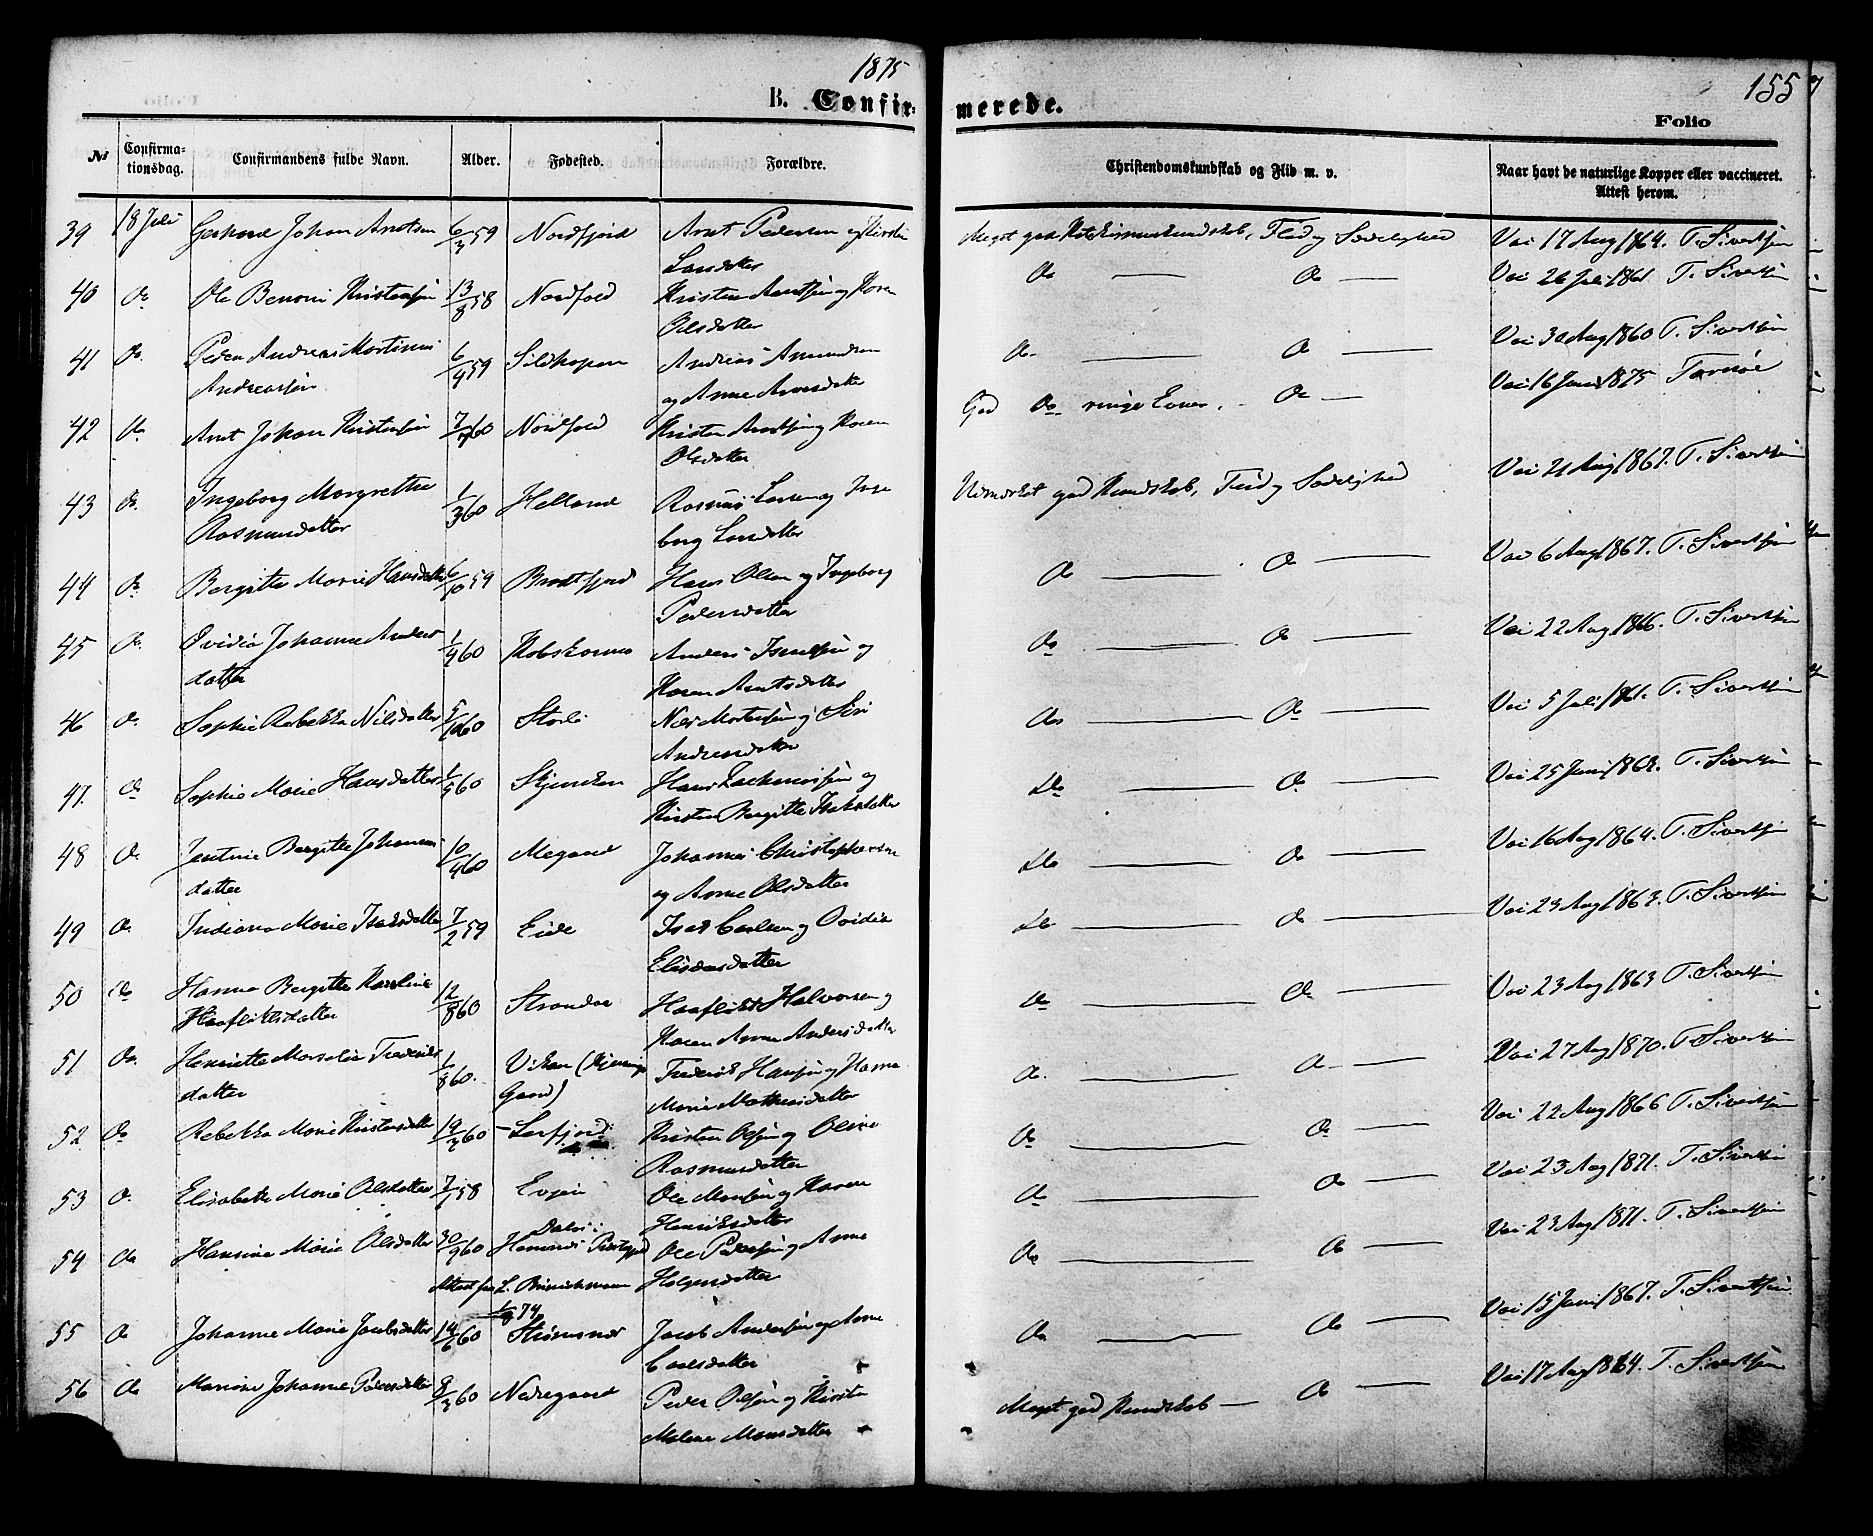 1875
155
B. Confir-
merede.
Folio
№ Confirma-tionsdag. Confirmandens fulde Navn. Alder. Fødested. Forældre. Christendomskundskab og Flid m. v. Naar havt de naturlige Kopper eller vaccineret. Attest herom.
39 18 Juli Gerhard Johan Arntsen 6/3 59 Nordfjord Arnt Pedersen og Kirsten Meget god Kundskab, Flid og Sædelighed Vac 17 Aug 1864. T. Sivertsen
Larsdatter
40 Do Ole Benoni Kristensen 13/8 58 Nordfold Kristen Arntsen og Karen Do Do Vac 26 Juli 1861 T. Sivertsen
Olsdatter
41 Do Peder Andreas Mortinus 6/9 59 Sildhopen Andreas Amundsen Do Do Vac 30 Aug 1860 T. Sivertsen
Andreassen og Anne Arnsdatter
42 Do Arnt Johan Kristensen 7/ 60 Nordfold Kristen Arntsen og Karen God Do ringe Evner. Do Vac 16 Juni 1875
Olsdatter
43 Do Ingeborg Margrethe 1/3 60 Helland Rasmus Larsen og Inge Udmærket god Kundskab, Flid og Sædelighed Vac 21 Aug 1867. T. Sivertsen
Rasmusdatter borg Larsdatter
44 Do Bergitte Marie Hansdatter 6/10 59 Brotfjord Hans Olsen og Ingeborg Do Do Vac 6 Aug 1867. T. Sivertsen
Pedersdatter
45 Do Ovidia Johanne Anders 1/4 60 Kobskarmo Anders Isaksen og Do Do Vac 22 Aug 1866. T. Sivertsen
datter Karen Arntsdatter
46 Do Sophie Rebekka Nilsdatter 60 Storli Nils Mortensen og Siri Do Do Vac 5 Juli 1861. T. Sivertsen
Andreasdatter
47. Do Sophie Marie Hansdatter 1/5 60 Hans Zachariassen og Do Do Vac 25 Juni 1862. T. Sivertsen
Kirsten Bergitte Isaksdatter
48 Do Jentine Bergitte Johannes 10/4 60 Megaard Johannes Christophersen Do Do Vac 16 Aug 1864. T. Sivertsen
datter og Anne Olsdatter
49 Do Indiana Marie Isaksdatter 7/2 59 Eide Isak Carlsen og Ovidia Do Do Vac 23 Aug 1863. T. Sivertsen
Eliseusdatter
50 Do Hanna Bergitte Karoline 12/8 60 Strandaa Haaflikt Halvorsen og Do Do Vac 23 Aug 1863 T. Sivertsen
Haafliktsdatter Karen Anna Andersdatter
51 Do Henriette Marselie Frederiks 1/8 60. Viken (Kjerringø Frederik Hansen og Hanna Do Do Vac 27 Aug 1870. T. Sivertsen
datter Gaard) Marie Matheusdatter
52 Do Rebekka Marie Kristensdatter 19/3 60 Kristen Olsen og Oline Do Do Vac 22 Aug 1866 T. Sivertsen
Rasmusdatter
53 Do Elisabeth Marie Olsdatter 7/1 58 Evjen Ole Monsen og Karen Do Do Vac 23 Aug 1871. T. Sivertsen
Henriksdatter
54 Do Hansine Marie Olsdatter 30/9 60 Hemnes Præstegjeld Ole Pedersen og Anne Do Do Vac 23 Aug 1871. T. Sivertsen
Attest fra L. Brinchmann Holgersdatter
74
55 Do Johanne Marie Jacobsdatter 14/6 60 Strømsnes Jacob Andersen og Anne Do Do Vac 15 Juni 1867. T. Sivertsen
Carlsdatter
56 Do Marine Johanne Pedersdatter 9/3 60 Nedregaard Peder Olsen og Kirsten Meget god Kundskab Do Vac 17 Aug 1864. T. Sivertsen
Malene Monsdatter